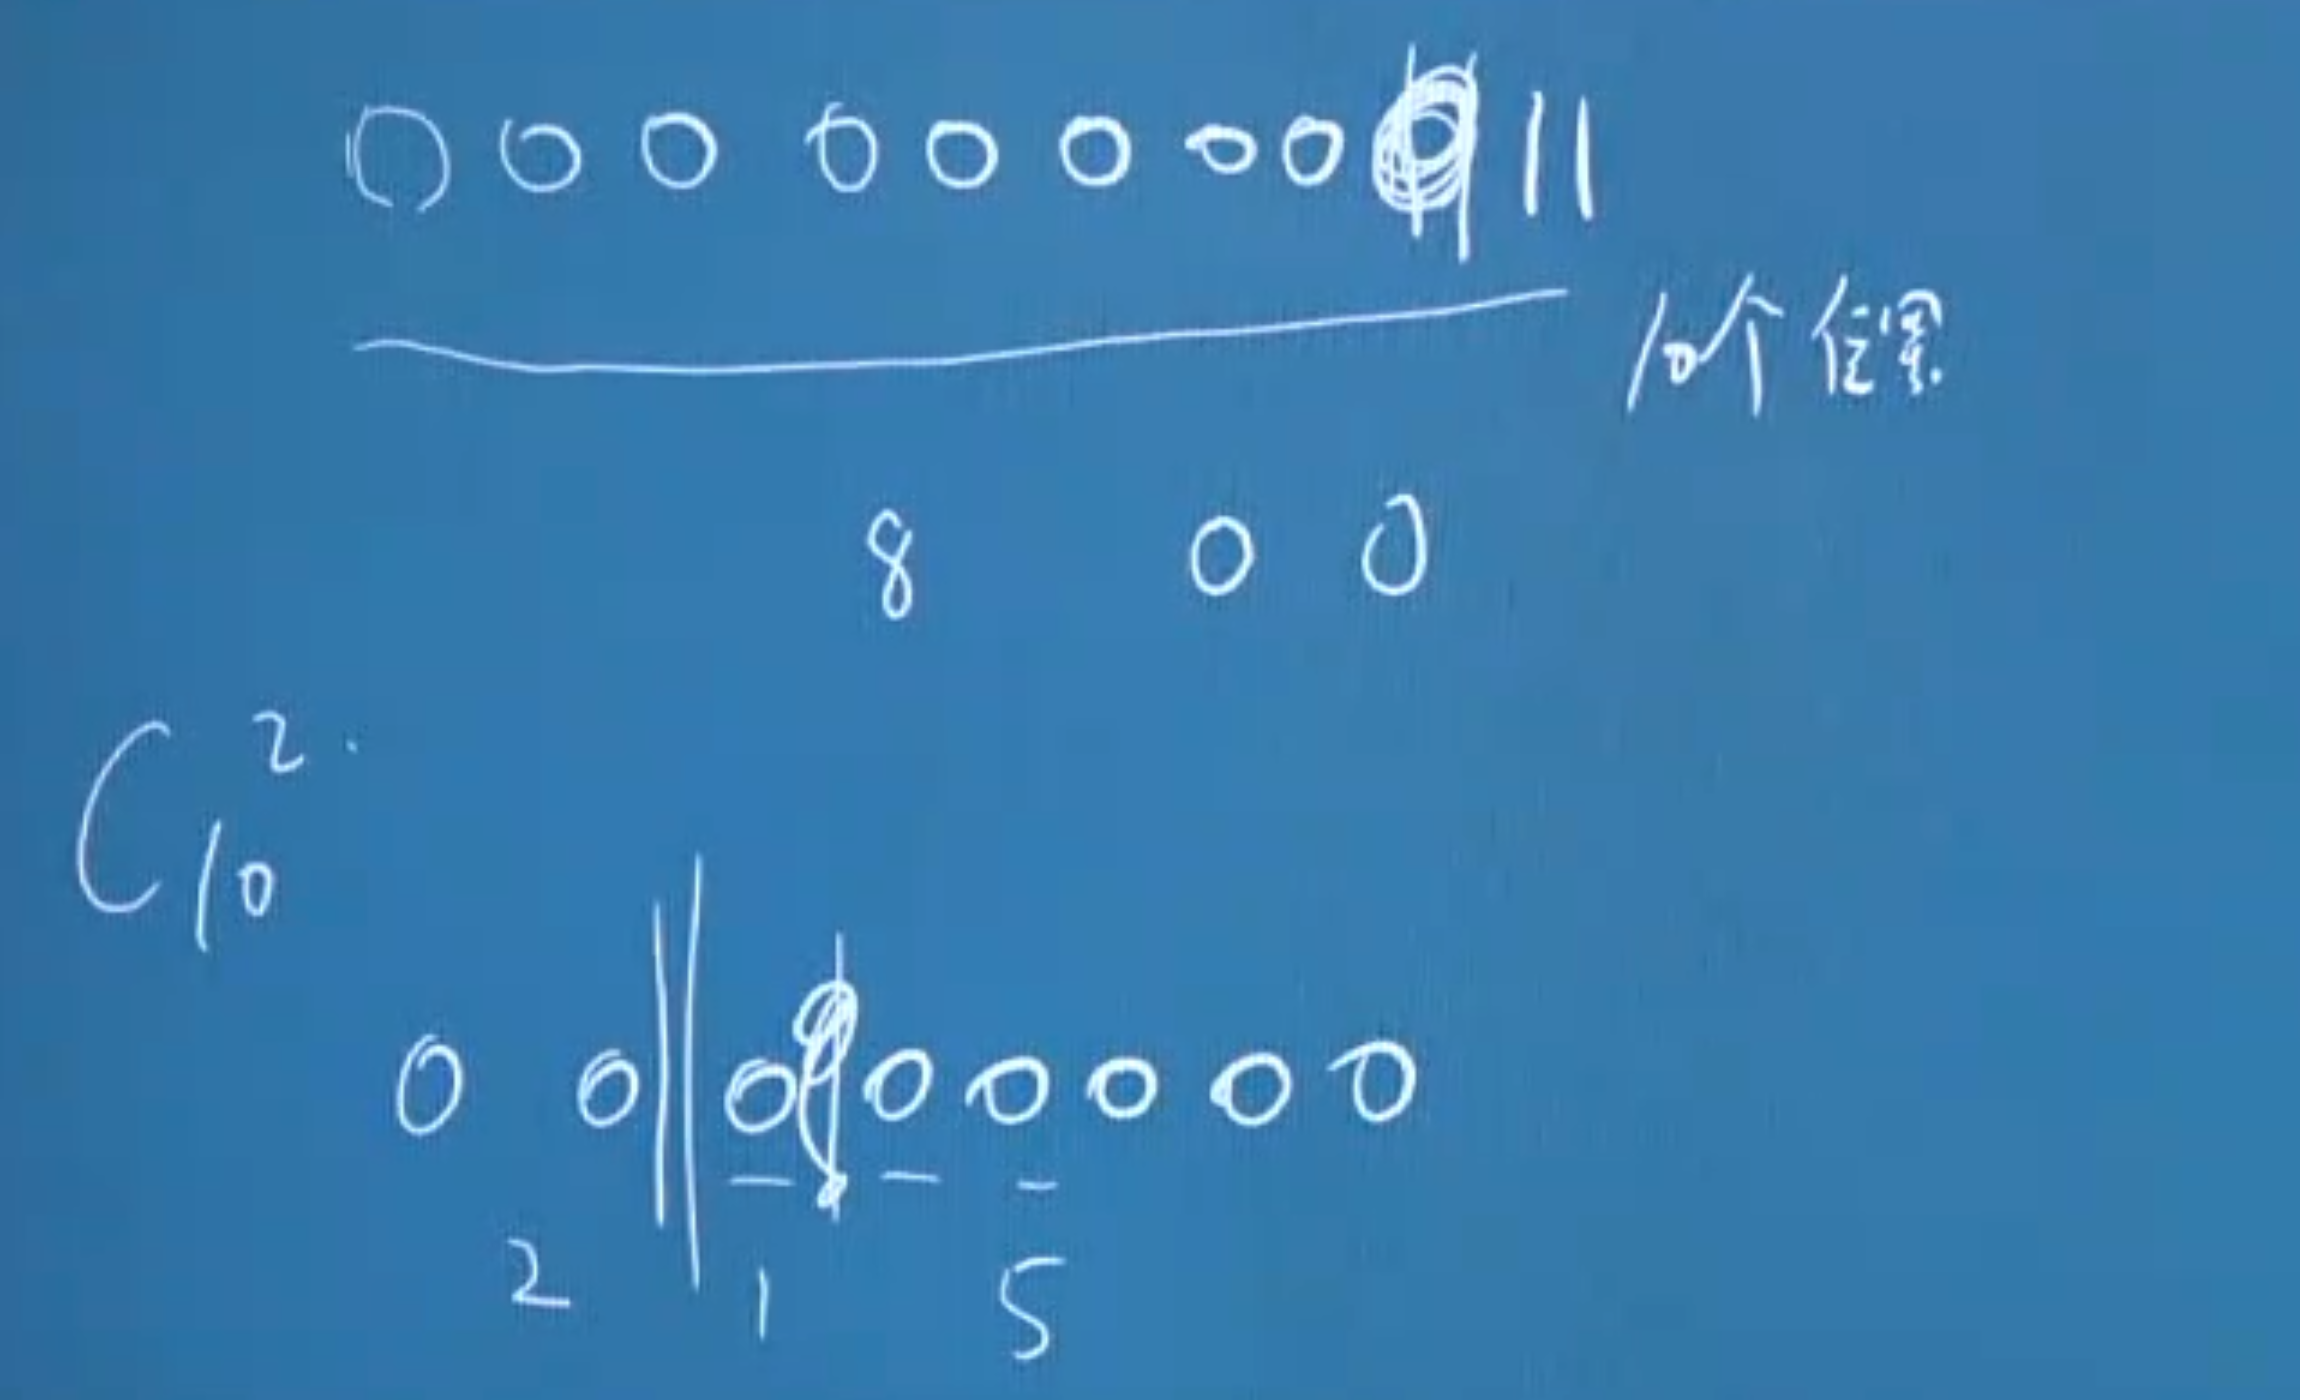 0 0 0 0 0 0 0 0 | |
10个位置
8 0 0
C₁₀²
0 0 | | 0 0 0 0 0 0
2 1 5